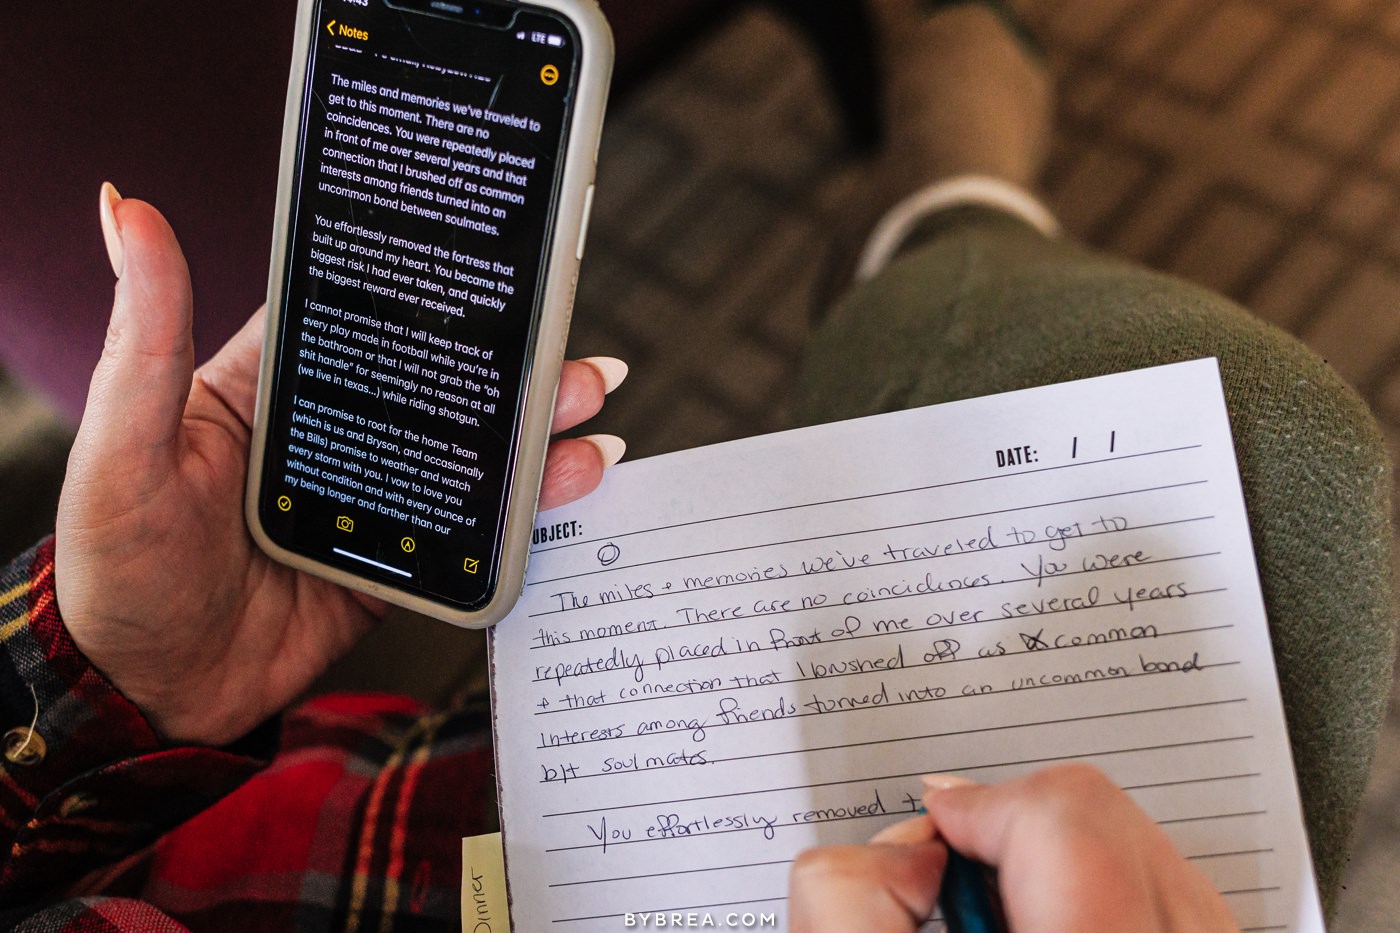 Notes
LTE
The miles and memories we've traveled to
get to this moment. There are no
coincidences. You were repeatedly placed
in front of me over several years and that
connection that I brushed off as common
interests among friends turned into an
uncommon bond between soulmates.
You effortlessly removed the fortress that
built up around my heart. You became the
biggest risk I had ever taken, and quickly
the biggest reward ever received.
I cannot promise that I will keep track of
every play made in football while you're in
the bathroom or that I will not grab the "oh
shit handle" for seemingly no reason at all
(we live in texas...) while riding shotgun.
I can promise to root for the home Team
(which is us and Bryson, and occasionally
the Bills) promise to weather and watch
every storm with you. I vow to love you
without condition and with every ounce of
my being longer and farther than our
DATE: / /
UBJECT:
The miles + memories we've traveled to get to
this moment. There are no coincidences. You were
repeatedly placed in front of me over several years
+ that connection that I brushed off as common
interests among friends turned into an uncommon bond
b/t soulmates.
You effortlessly removed t
Dinner
BYBREA.COM